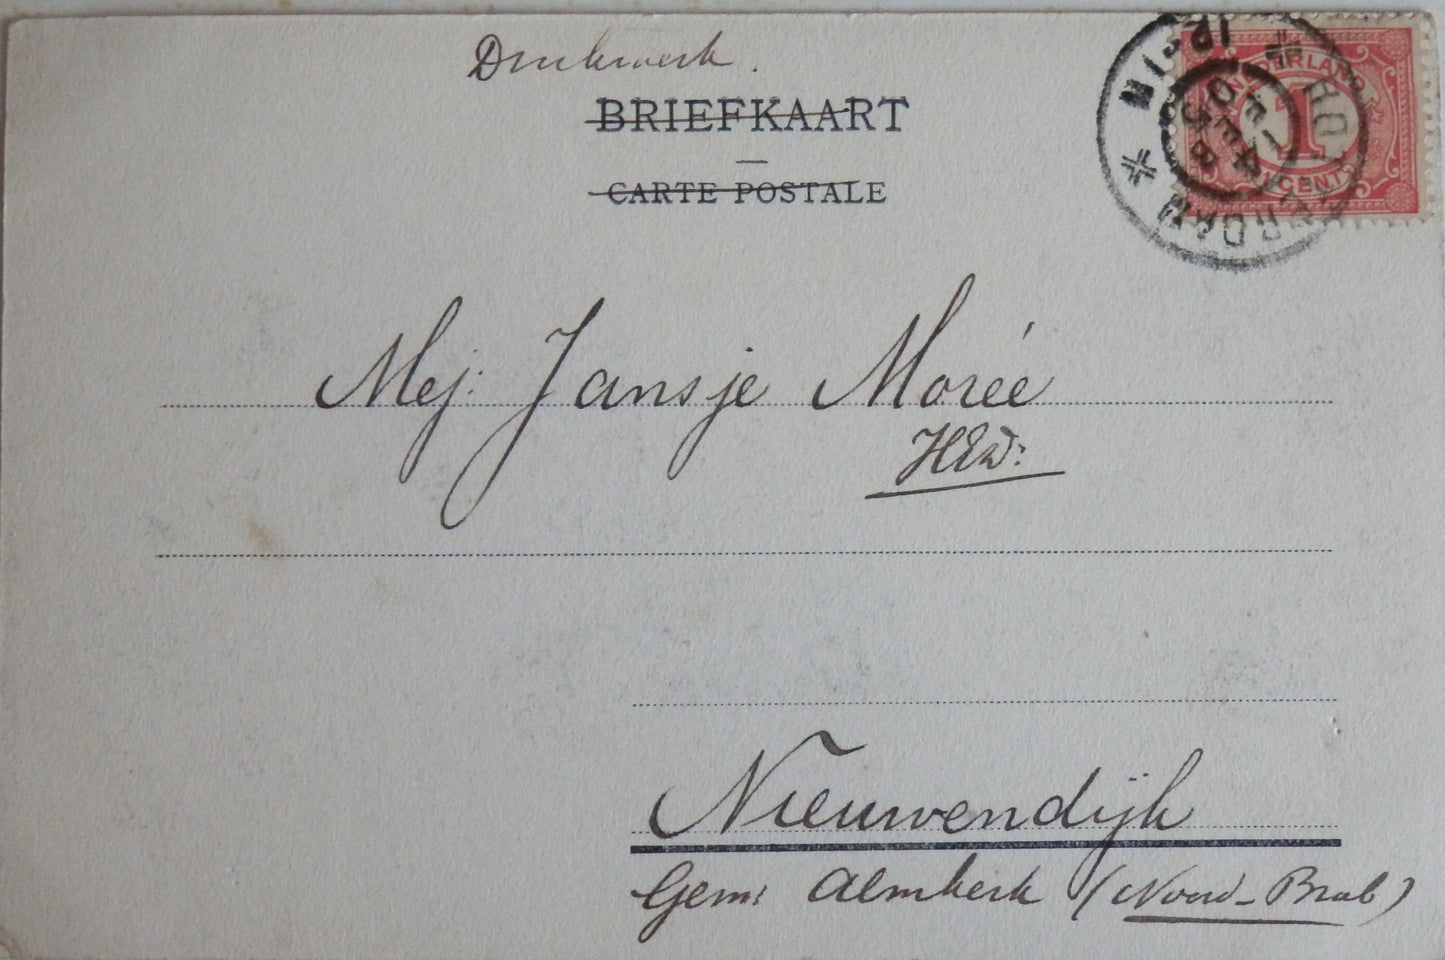 Drukwerk.
BRIEFKAART
CARTE POSTALE
NEDERLAND
1
CENT
ROTTERDAM
12-1N
14 FEB 05
Mej: Jansje Morée
HEd:
Nieuwendijk
Gem: Almkerk (Noord-Brab)